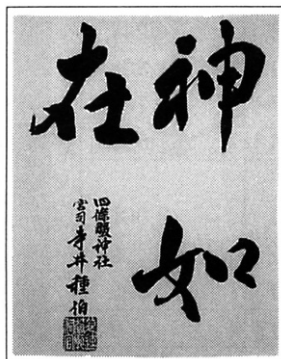 神如
在
四條畷神社
宮司 寺井種伯